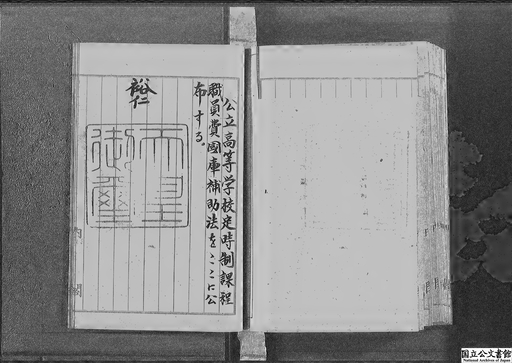 公立高等学校定時制課程
職員費國庫補助法をここに公
布する。
裕仁
天皇
御璽
内
閣
国立公文書館
National Archives of Japan